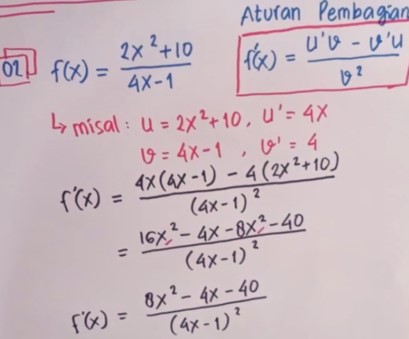 Aturan Pembagian
02 f(x) = \frac{2x^2+10}{4x-1}
f'(x) = \frac{u'v - v'u}{v^2}
↳ misal : u = 2x²+10, u' = 4x
v = 4x-1 , v' = 4
f'(x) = \frac{4x(4x-1) - 4(2x^2+10)}{(4x-1)^2}
= \frac{16x^2 - 4x - 8x^2 - 40}{(4x-1)^2}
f'(x) = \frac{8x^2 - 4x - 40}{(4x-1)^2}